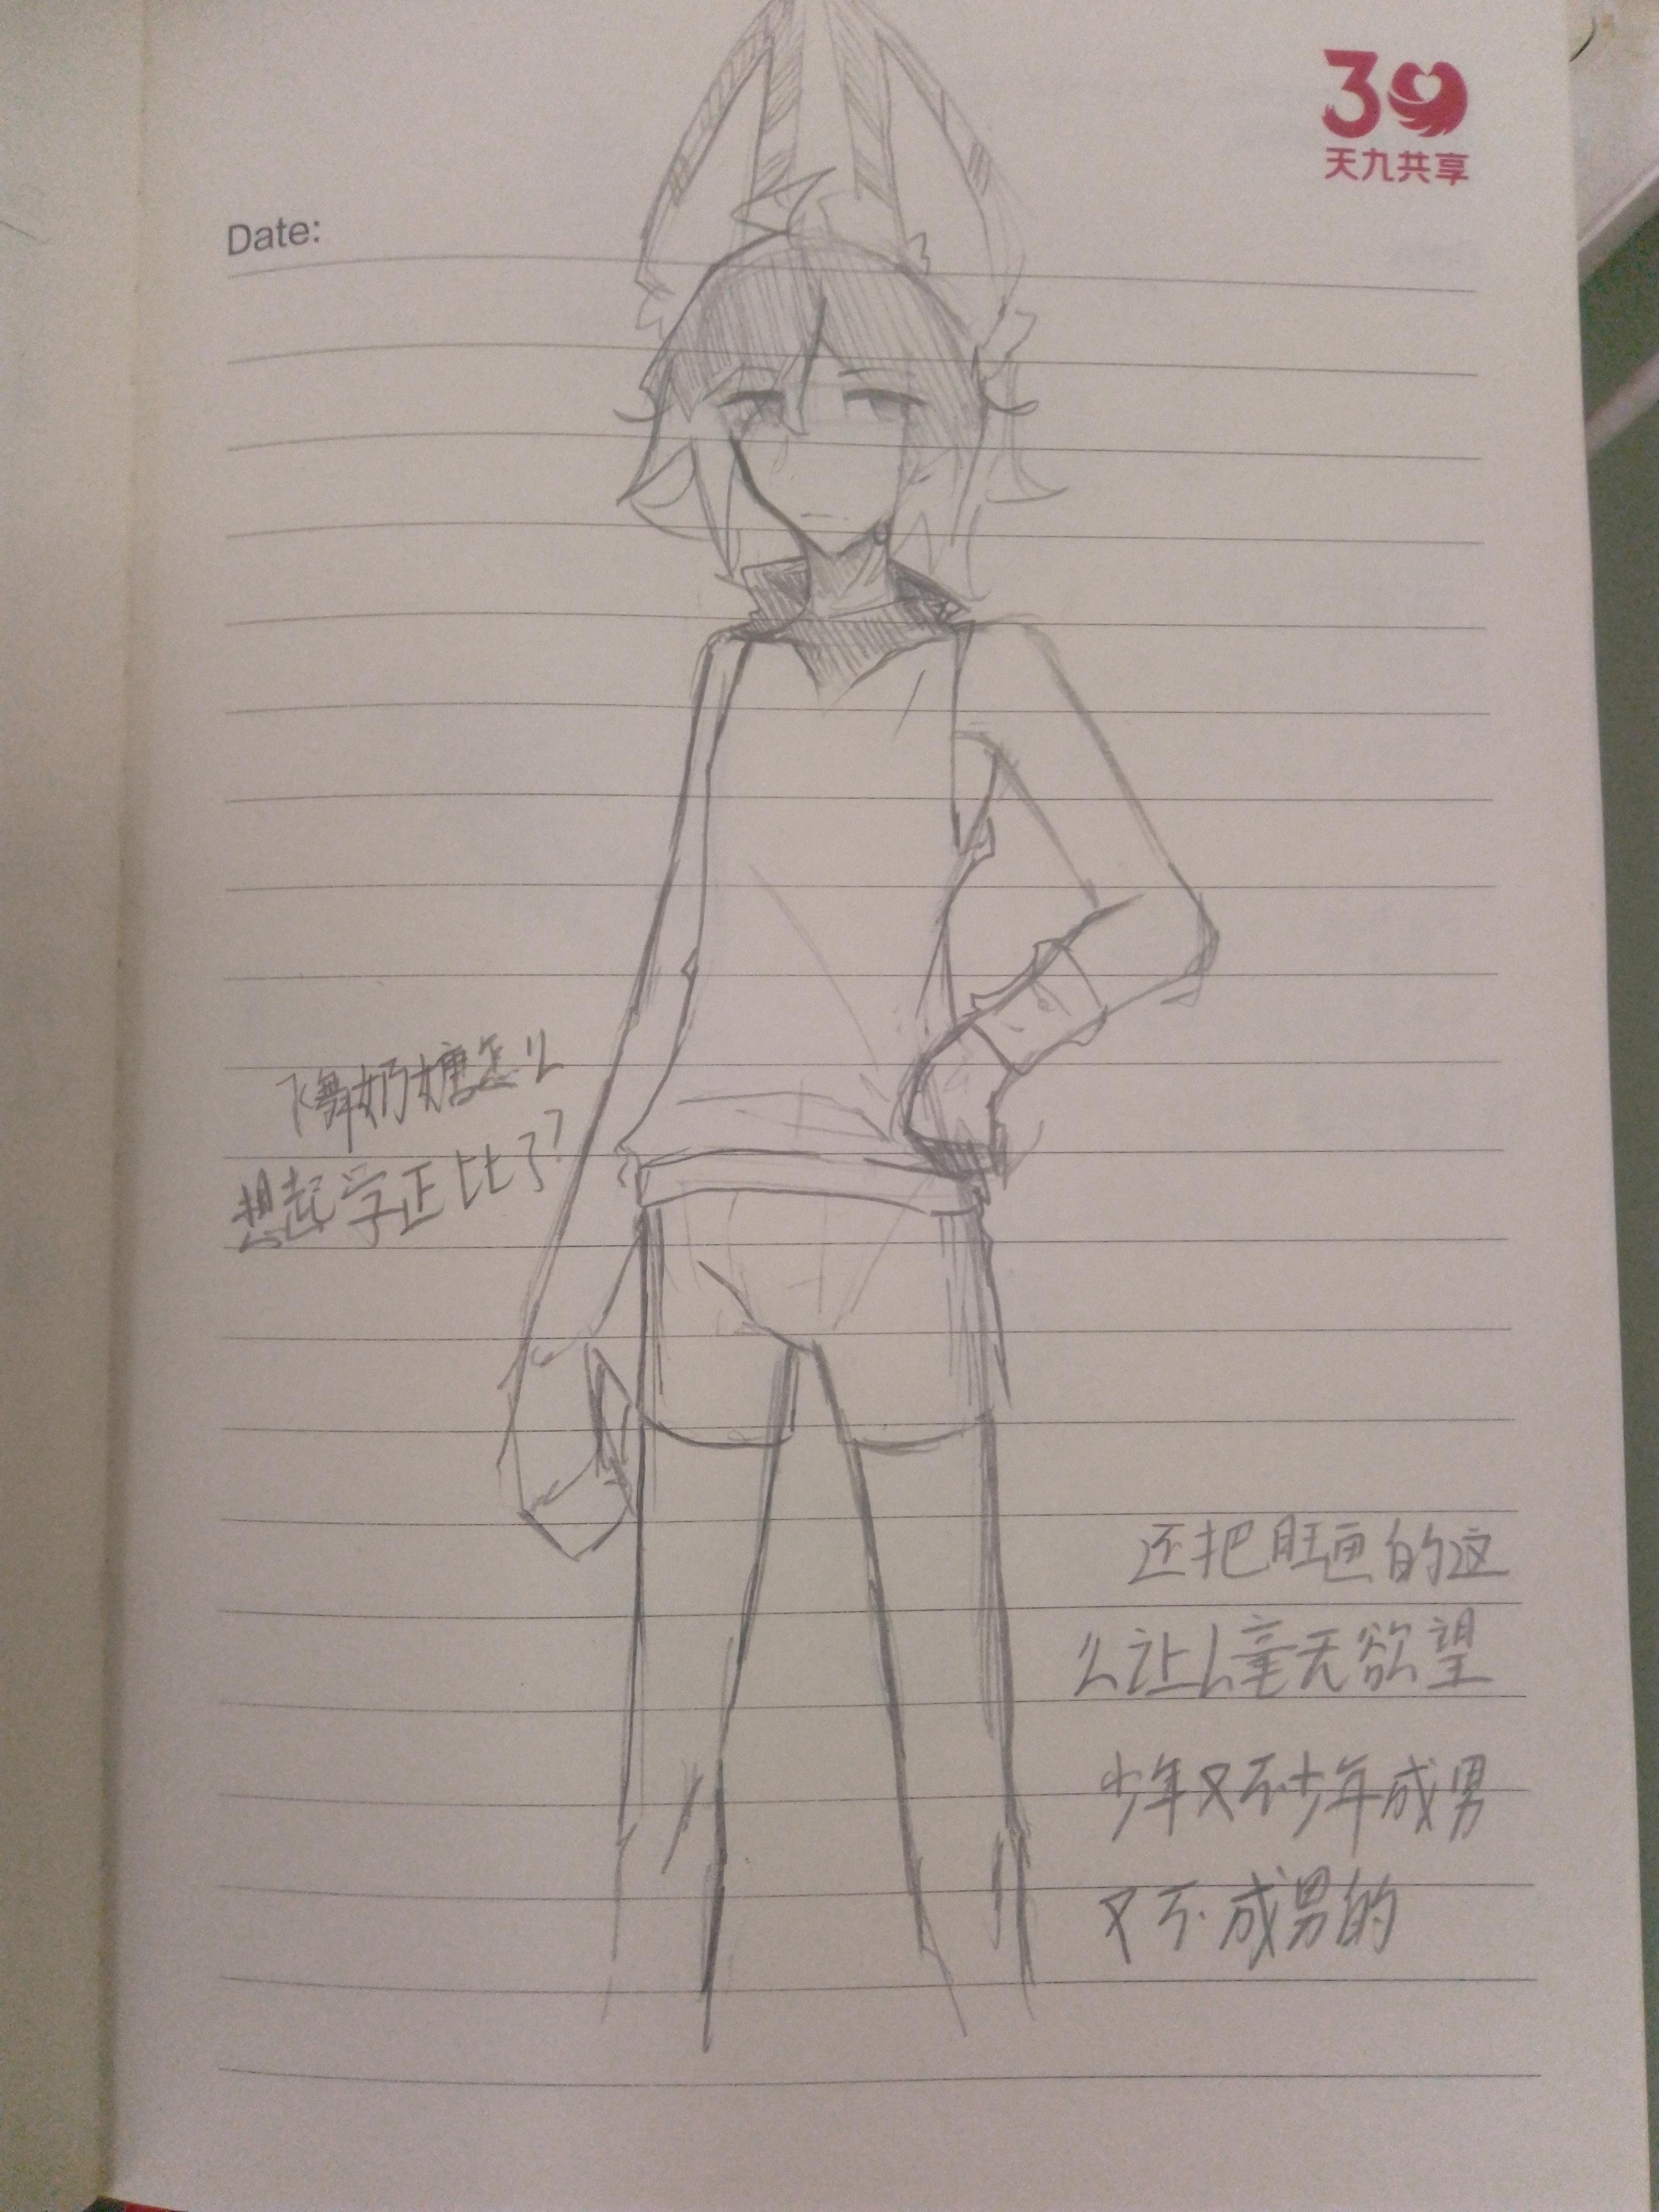 30
天九共享
Date:
飞舞奶糖怎么
想起学正比了？
还把旺画的这
么让人毫无欲望
少年又不少年成男
又不成男的